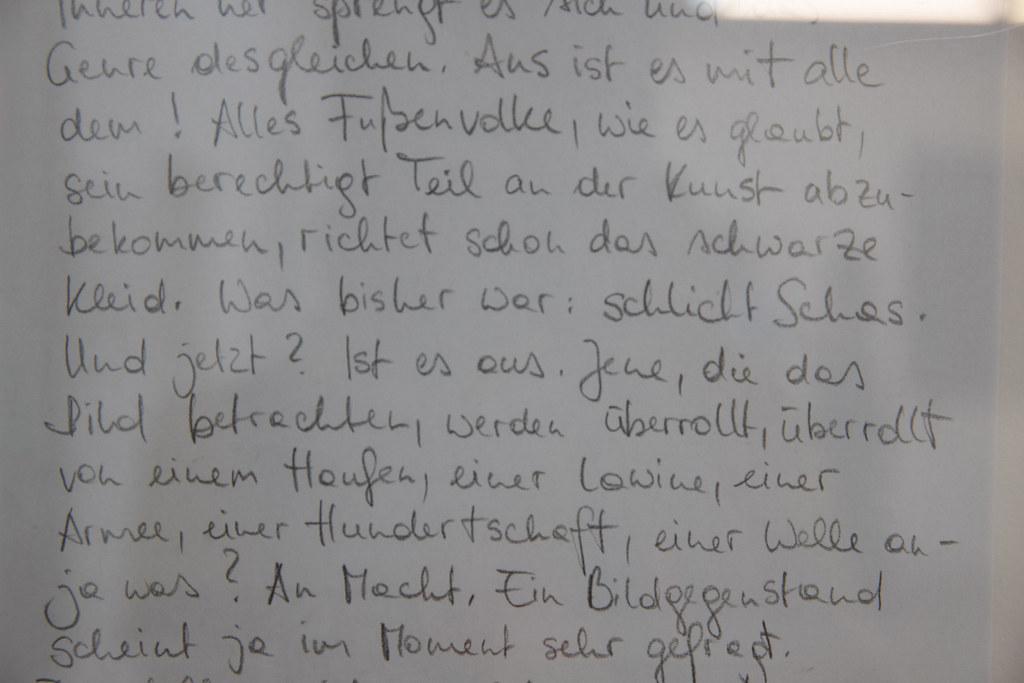 Inneren her sprengt es sich und
Genre desgleichen. Aus ist es mit alle
dem! Alles Fußenvolke, wie es glaubt,
sein berechtigt Teil an der Kunst abzu-
bekommen, richtet schon das schwarze
Kleid. Was bisher war: schlicht Schas.
Und jetzt? Ist es aus. Jene, die das
Bild betrachten, werden überrollt, überrollt
von einem Haufen, einer Lawine, einer
Armee, einer Hundertschaft, einer Welle an -
ja was? An Macht. Ein Bildgegenstand
scheint ja im Moment sehr gefragt.